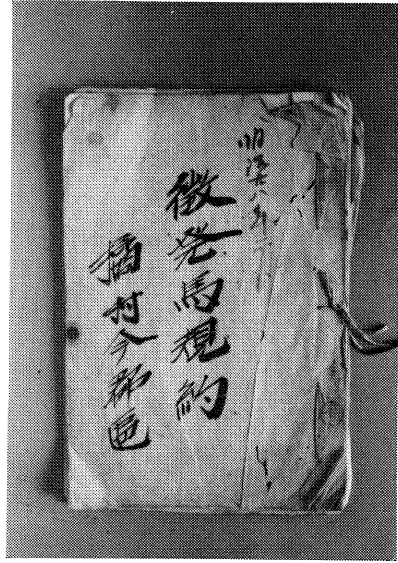 明治廿八年
徴発馬規約
橘村今郡區